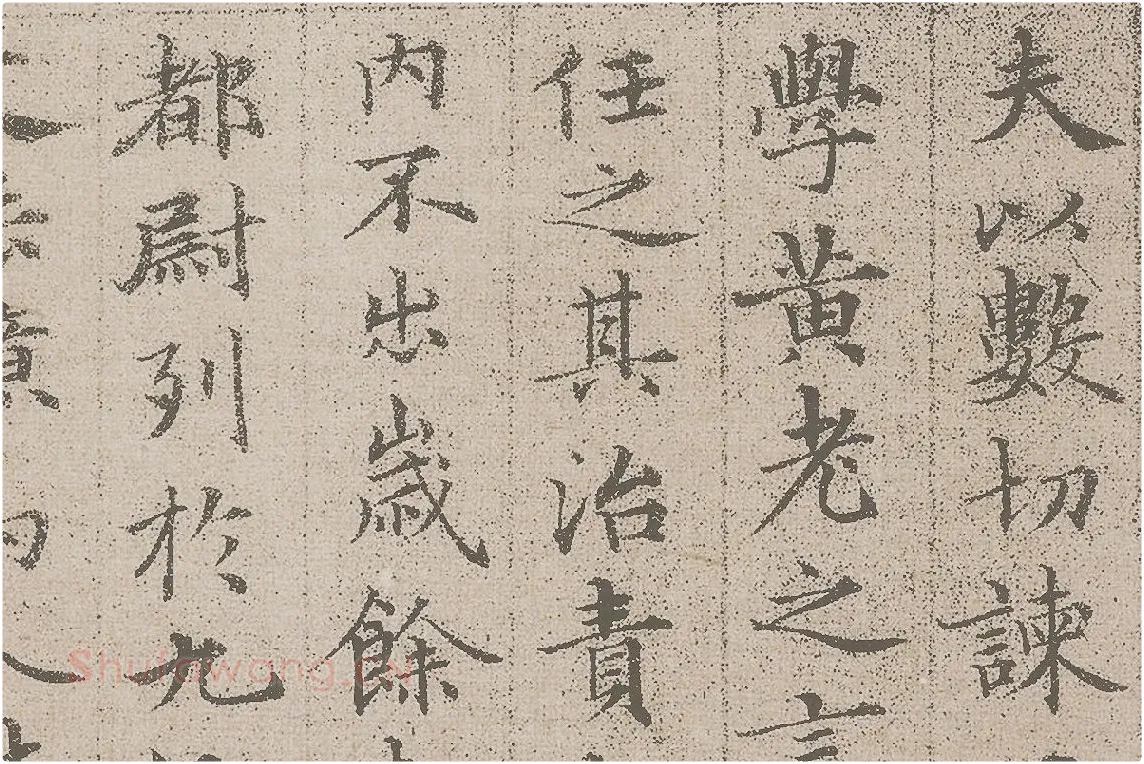 夫以數切諫
學黄老之言
任之其治責
内不出歲餘
都尉列於九
Shufawang.cn